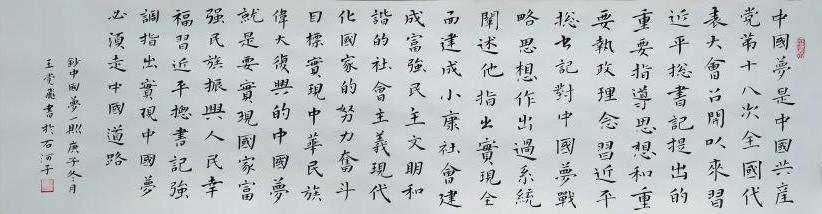 中國夢是中國共產
黨第十八次全國代
表大會召開以來習
近平総書記提出的
重要指導思想和重
要執政理念習近平
総書記對中國夢戰
略思想作出過系統
闡述他指出實現全
面建成小康社會建
成富強民主文明和
諧的社會主義現代
化國家的努力奮斗
目標實現中華民族
偉大復興的中國夢
就是要實現國家富
強民族振興人民幸
福習近平摠書記強
調指出實現中國夢
必須走中國道路
鈔中國夢一則庚子冬月
王党飛書於石河子